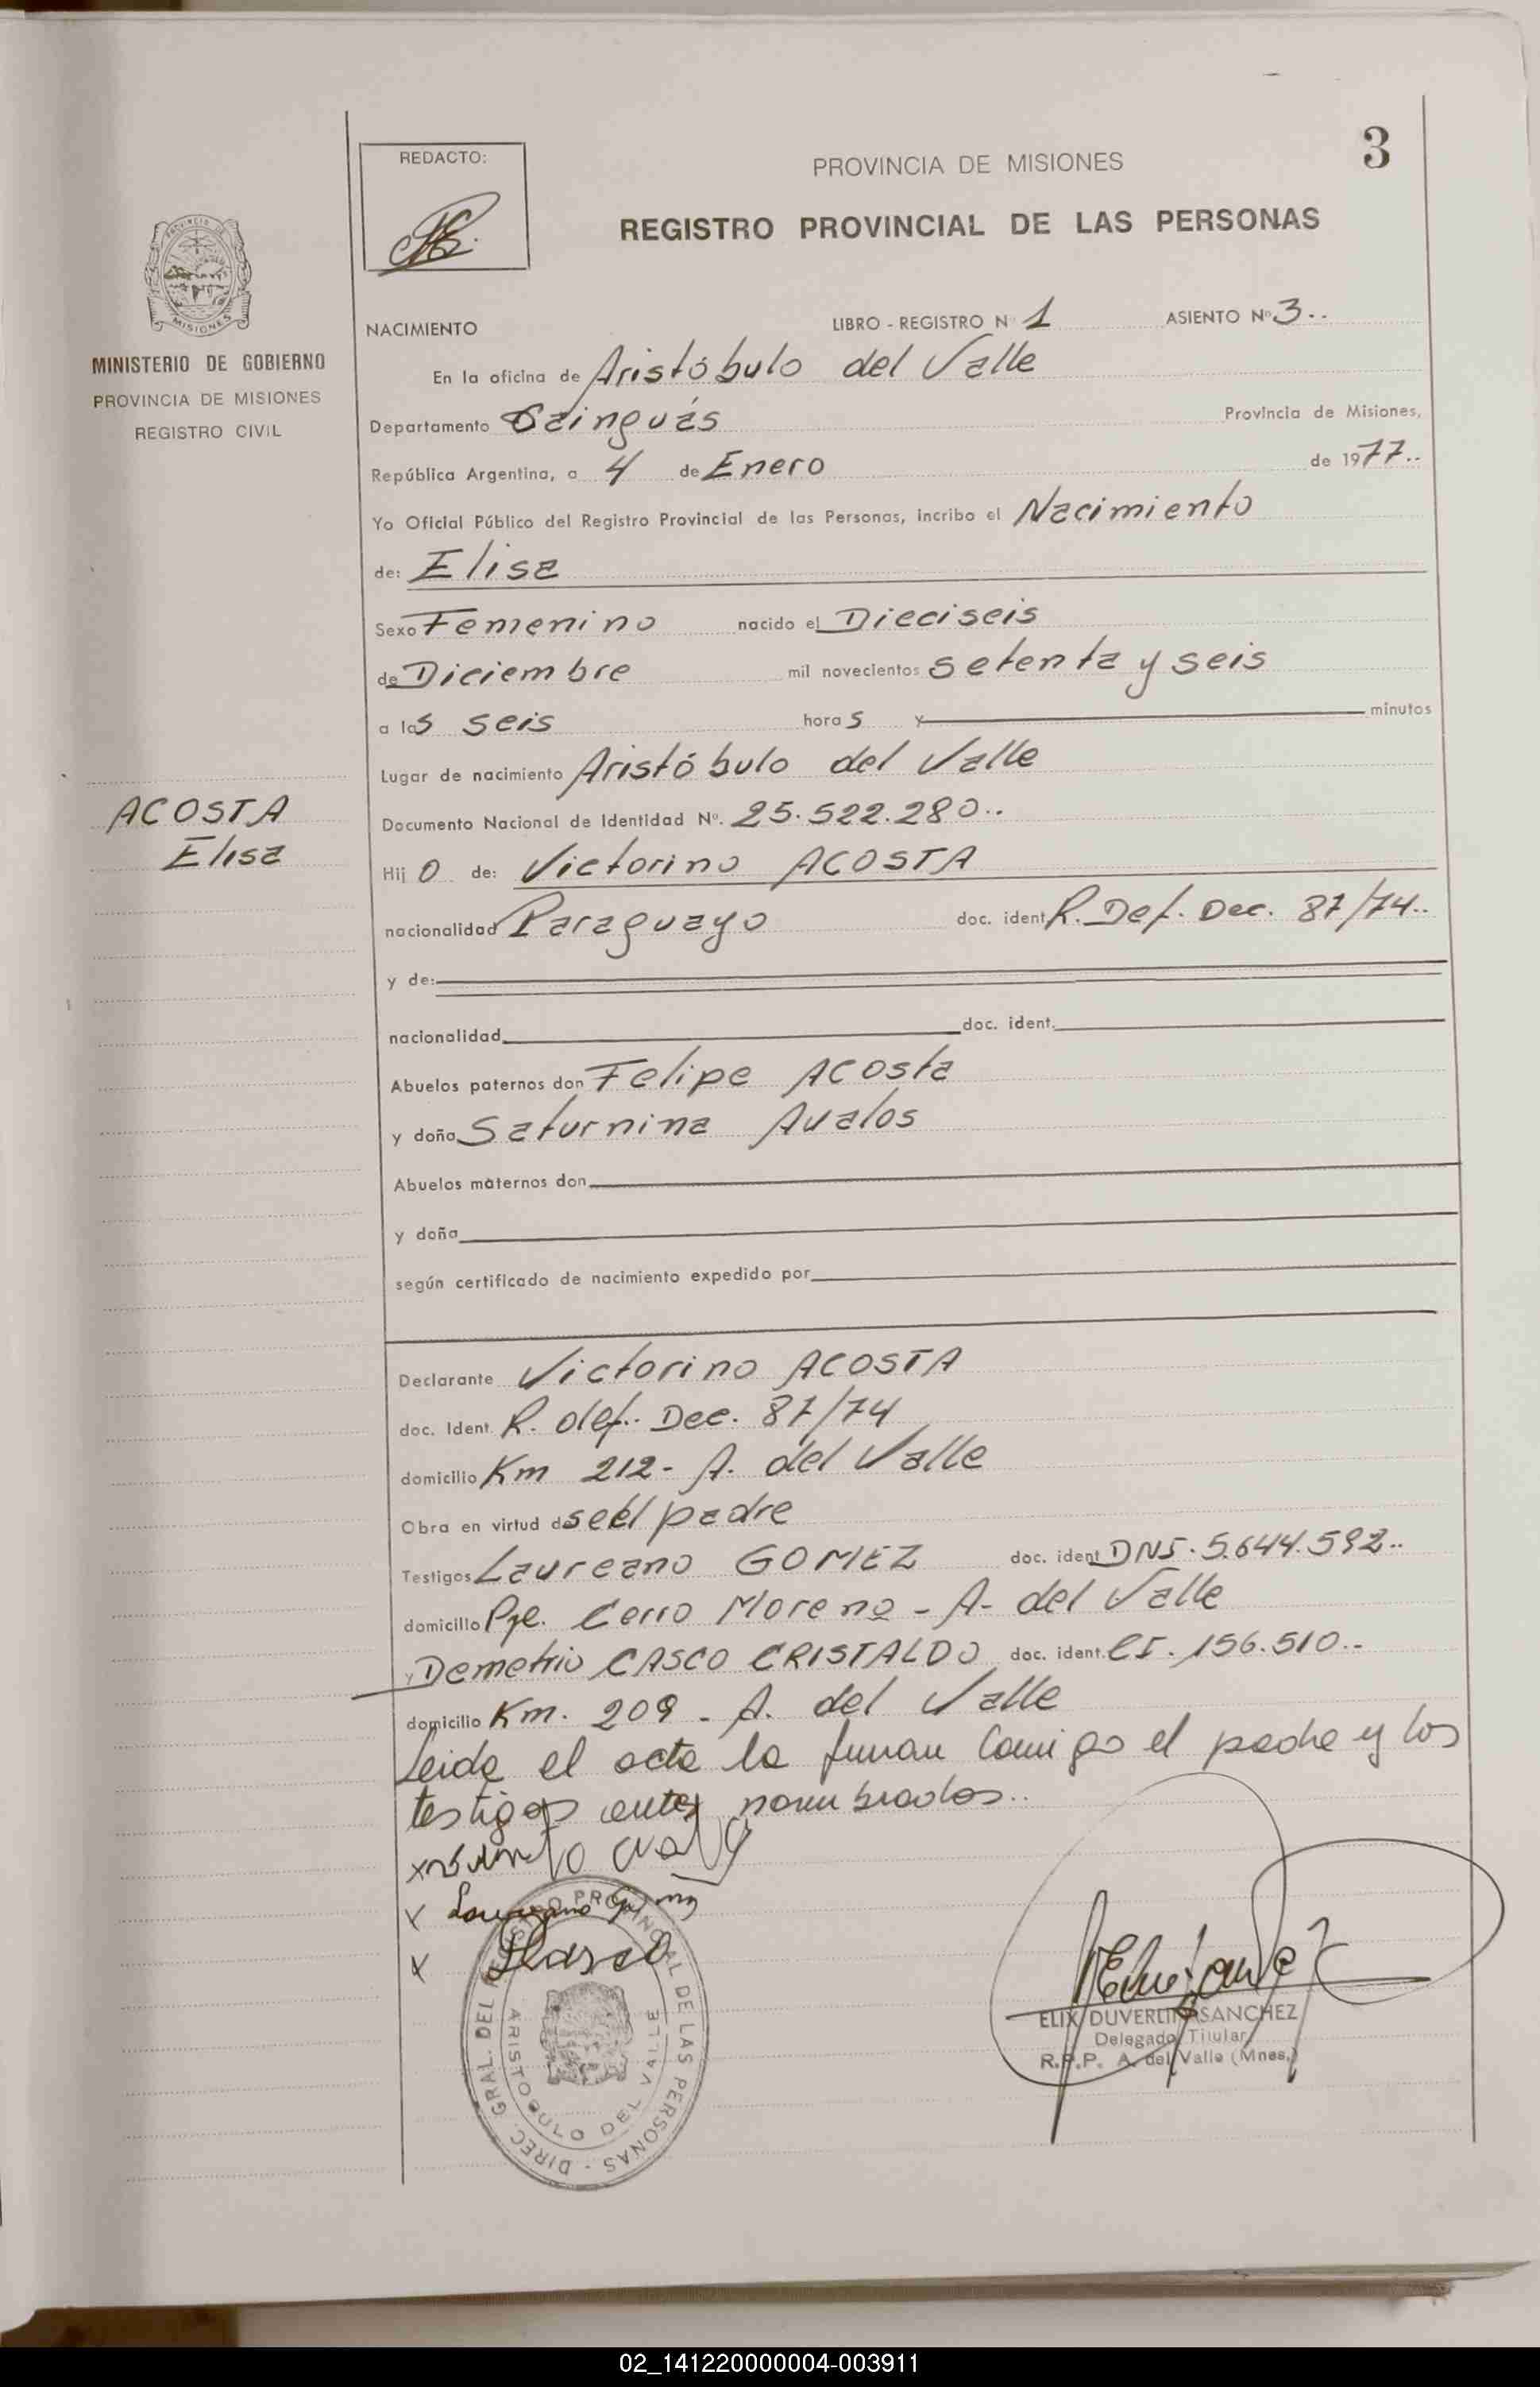 3
REDACTO:
PROVINCIA DE MISIONES
REGISTRO PROVINCIAL DE LAS PERSONAS
PROVINCIA
MISIONES
MINISTERIO DE GOBIERNO
PROVINCIA DE MISIONES
REGISTRO CIVIL
NACIMIENTO LIBRO - REGISTRO Nº 1 ASIENTO Nº 3..
En la oficina de Aristóbulo del Valle
Departamento Cainguás Provincia de Misiones,
República Argentina, a 4 de Enero de 1977..
Yo Oficial Público del Registro Provincial de las Personas, incribo el Nacimiento
de: Elisa
Sexo Femenino nacido el Dieciseis
de Diciembre mil novecientos setenta y seis
a las seis horas y minutos
Lugar de nacimiento Aristóbulo del Valle
ACOSTA
Elisa
Documento Nacional de Identidad Nº. 25.522.280..
Hij o de: Victorino ACOSTA
nacionalidad Paraguayo doc. ident. R. Def. Dec. 87/74..
y de:
nacionalidad doc. ident.
Abuelos paternos don Felipe Acosta
y doña Saturnina Avalos
Abuelos maternos don
y doña
según certificado de nacimiento expedido por
Declarante Victorino ACOSTA
doc. Ident. R. def.. Dec. 87/74
domicilio Km 212- A. del Valle
Obra en virtud de seél padre
Testigos Laureano GOMEZ doc. ident DNI. 5.644.592..
domicilio Pje. Cerro Moreno - A- del Valle
y Demetrio CASCO CRISTALDO doc. ident. CI. 156.510..
domicilio Km. 209 - A. del Valle
Leida el acta la firman conmigo el padre y los
testigos antes nombrados..
x
x Laureano
x Casco
DIREC. GRAL. DEL REGISTRO PROVINCIAL DE LAS PERSONAS -
ARISTOBULO DEL VALLE
ELIX DUVERLIN SANCHEZ
Delegado Titular
R.P.P. A. del Valle (Mnes.)
02_141220000004-003911